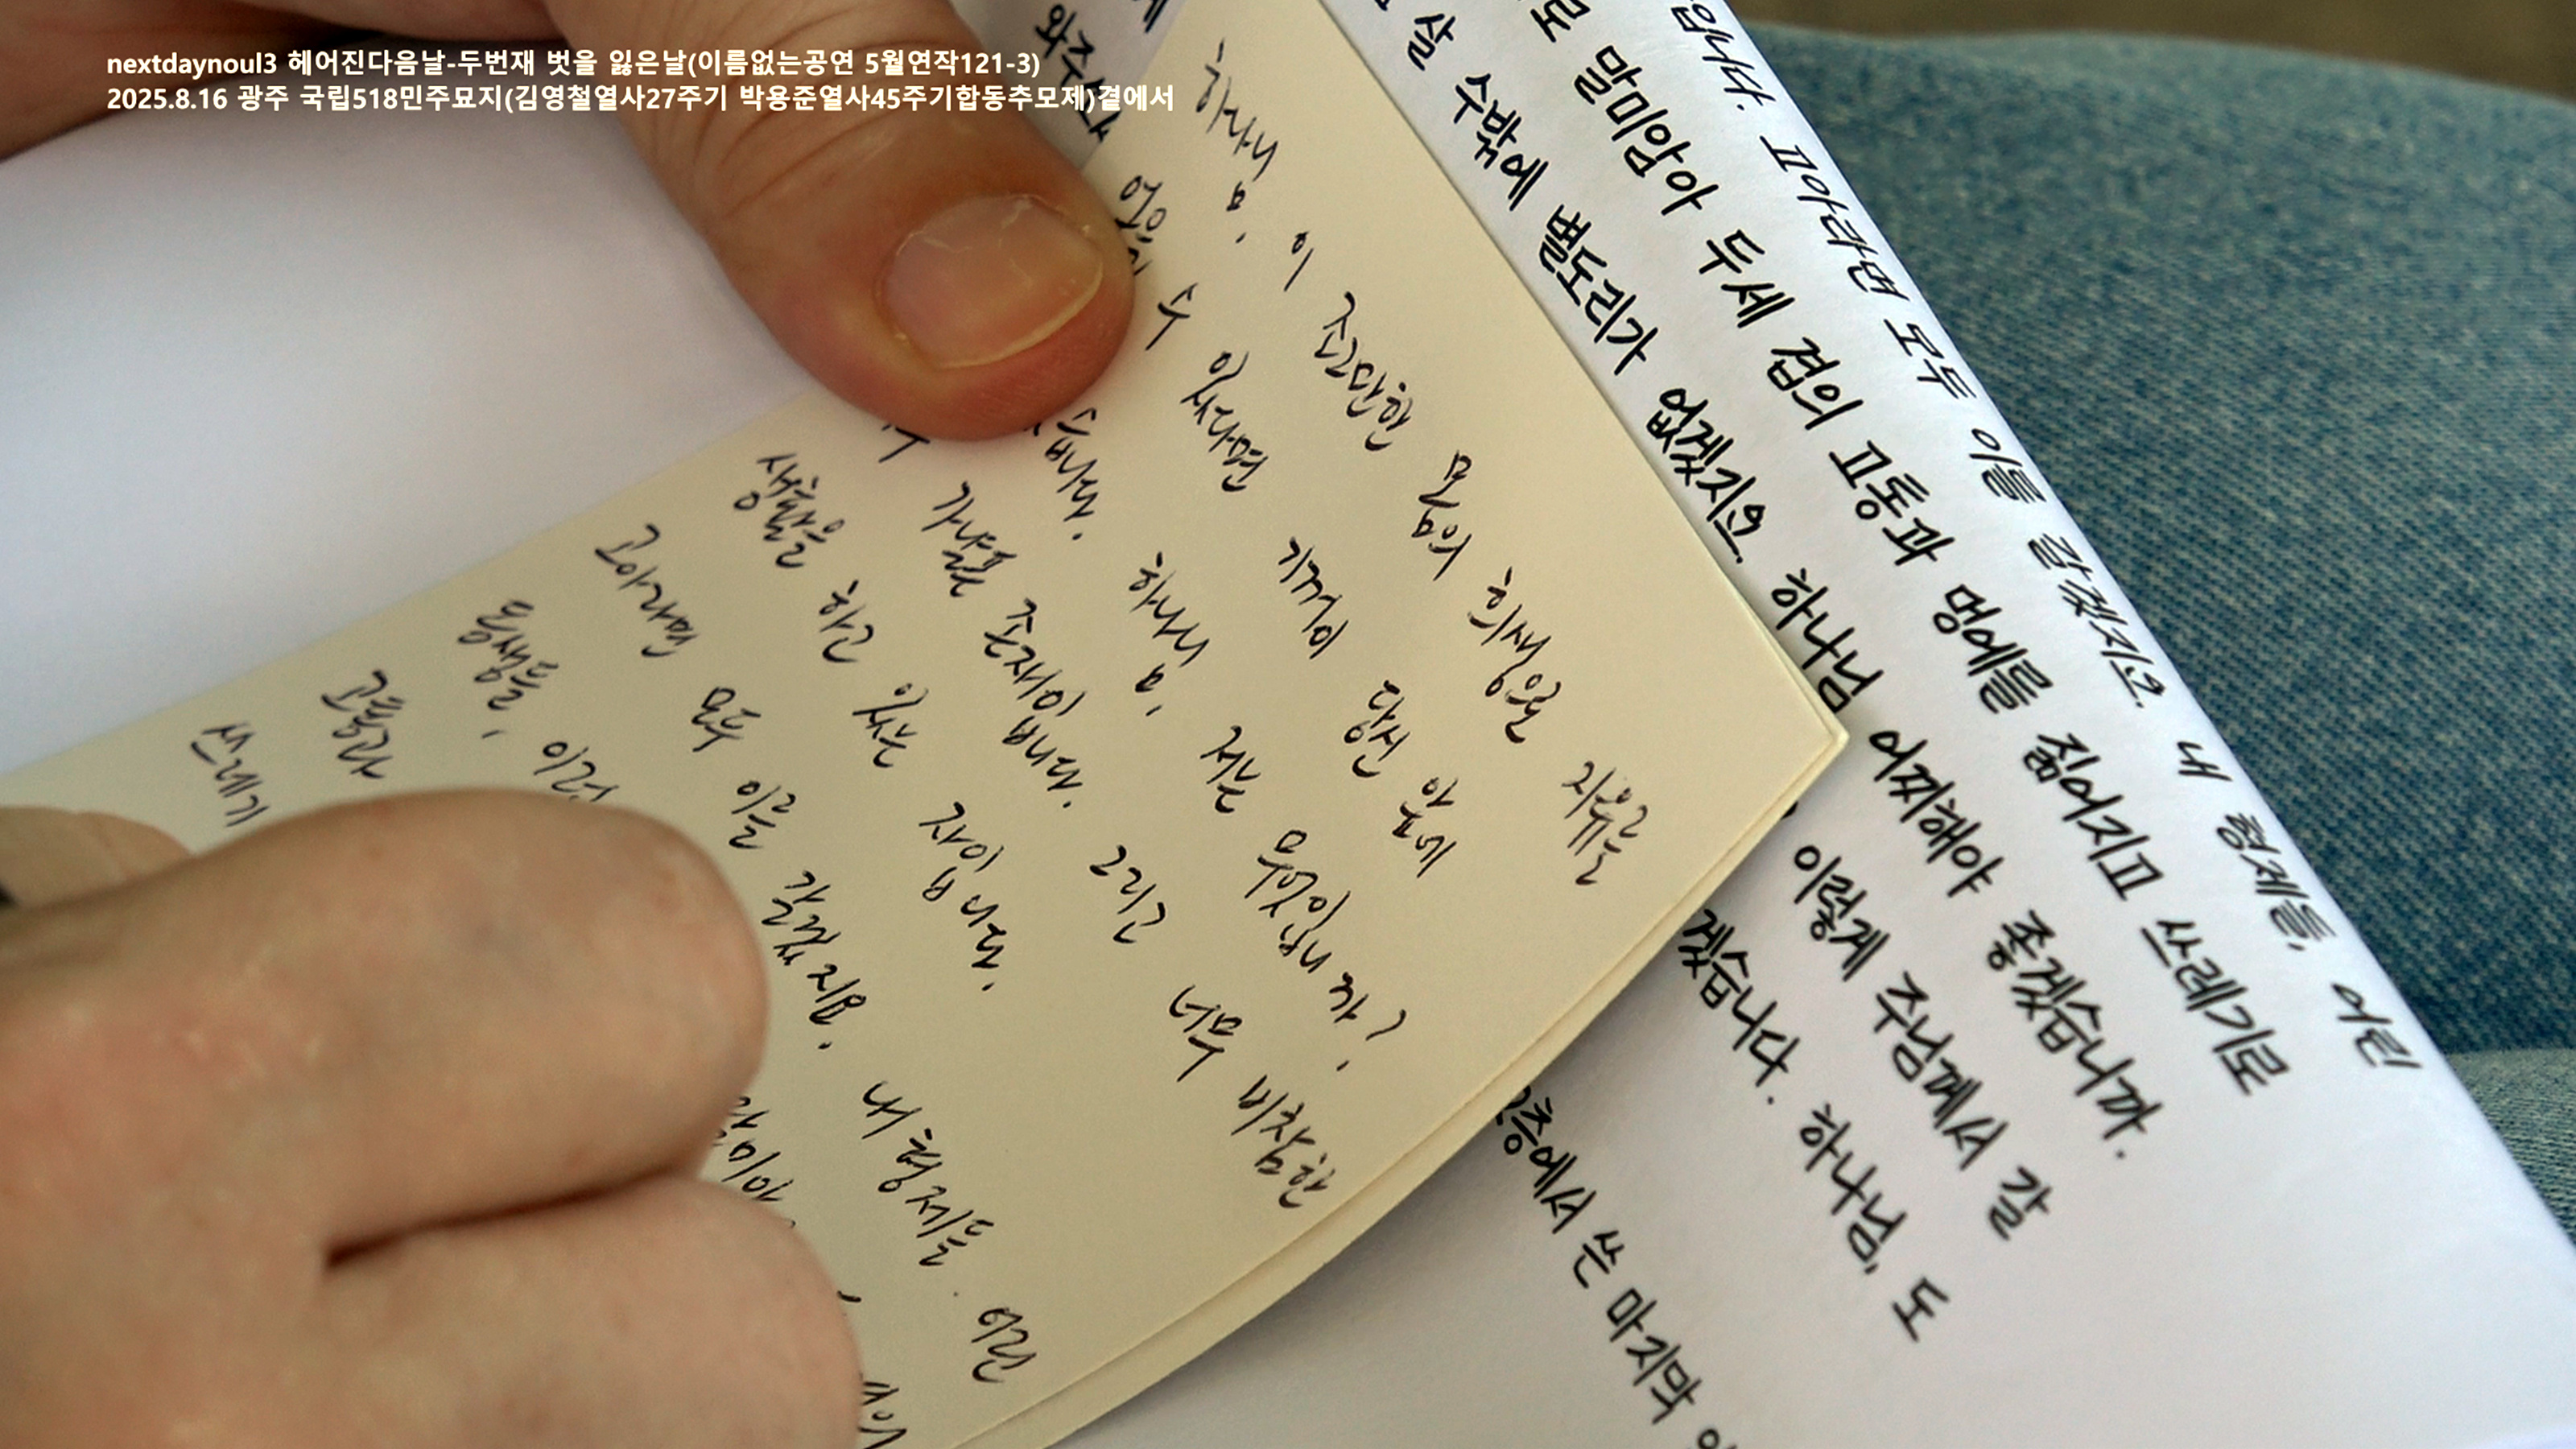 nextdaynoul3 헤어진다음날-두번재 벗을 잃은날(이름없는공연 5월연작121-3)
2025.8.16 광주 국립518민주묘지(김영철열사27주기 박용준열사45주기합동추모제)곁에서
하나님, 이 조그만한 몸의 희생으로 자유를
얻을 수 있다면 기꺼이 당신 앞에
하나님, 저는 무엇입니까?
가냘픈 존재입니다. 그리고 너무 비참한
생활을 하고 있는 자입니다.
고아라면 모두 이를 갈겠지요. 내 형제들. 어린
동생들, 이런
고통과
쓰레기
와주소서
입니다. 고아라면 모두 이를 갈겠지요. 내 형제들, 어린
로 말미암아 두세 겹의 고통과 멍에를 짊어지고 쓰레기로
살 수밖에 별도리가 없겠지요. 하나님 어찌해야 좋겠습니까.
이렇게 주님께서 갈
겠습니다. 하나님, 도
층에서 쓴 마지막